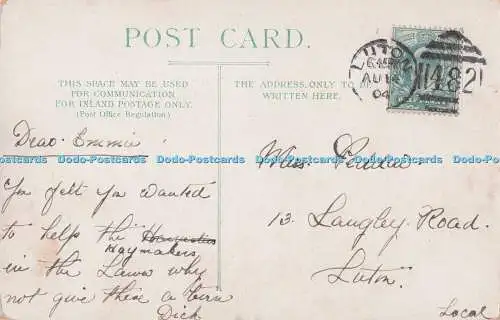 POST CARD.
THIS SPACE MAY BE USED
FOR COMMUNICATION
FOR INLAND POSTAGE ONLY.
(Post Office Regulation)
THE ADDRESS ONLY TO BE
WRITTEN HERE.
LUTON
AU 14
04
482
Dear Emmie
If you felt you wanted
to help the
Haymakers
in the Lawn why
not give them a turn
Dick
Miss
13. Langley Road.
Luton.
Local
Dodo-Postcards Dodo-Postcards Dodo-Postcards Dodo-Postcards Dodo-Postcards